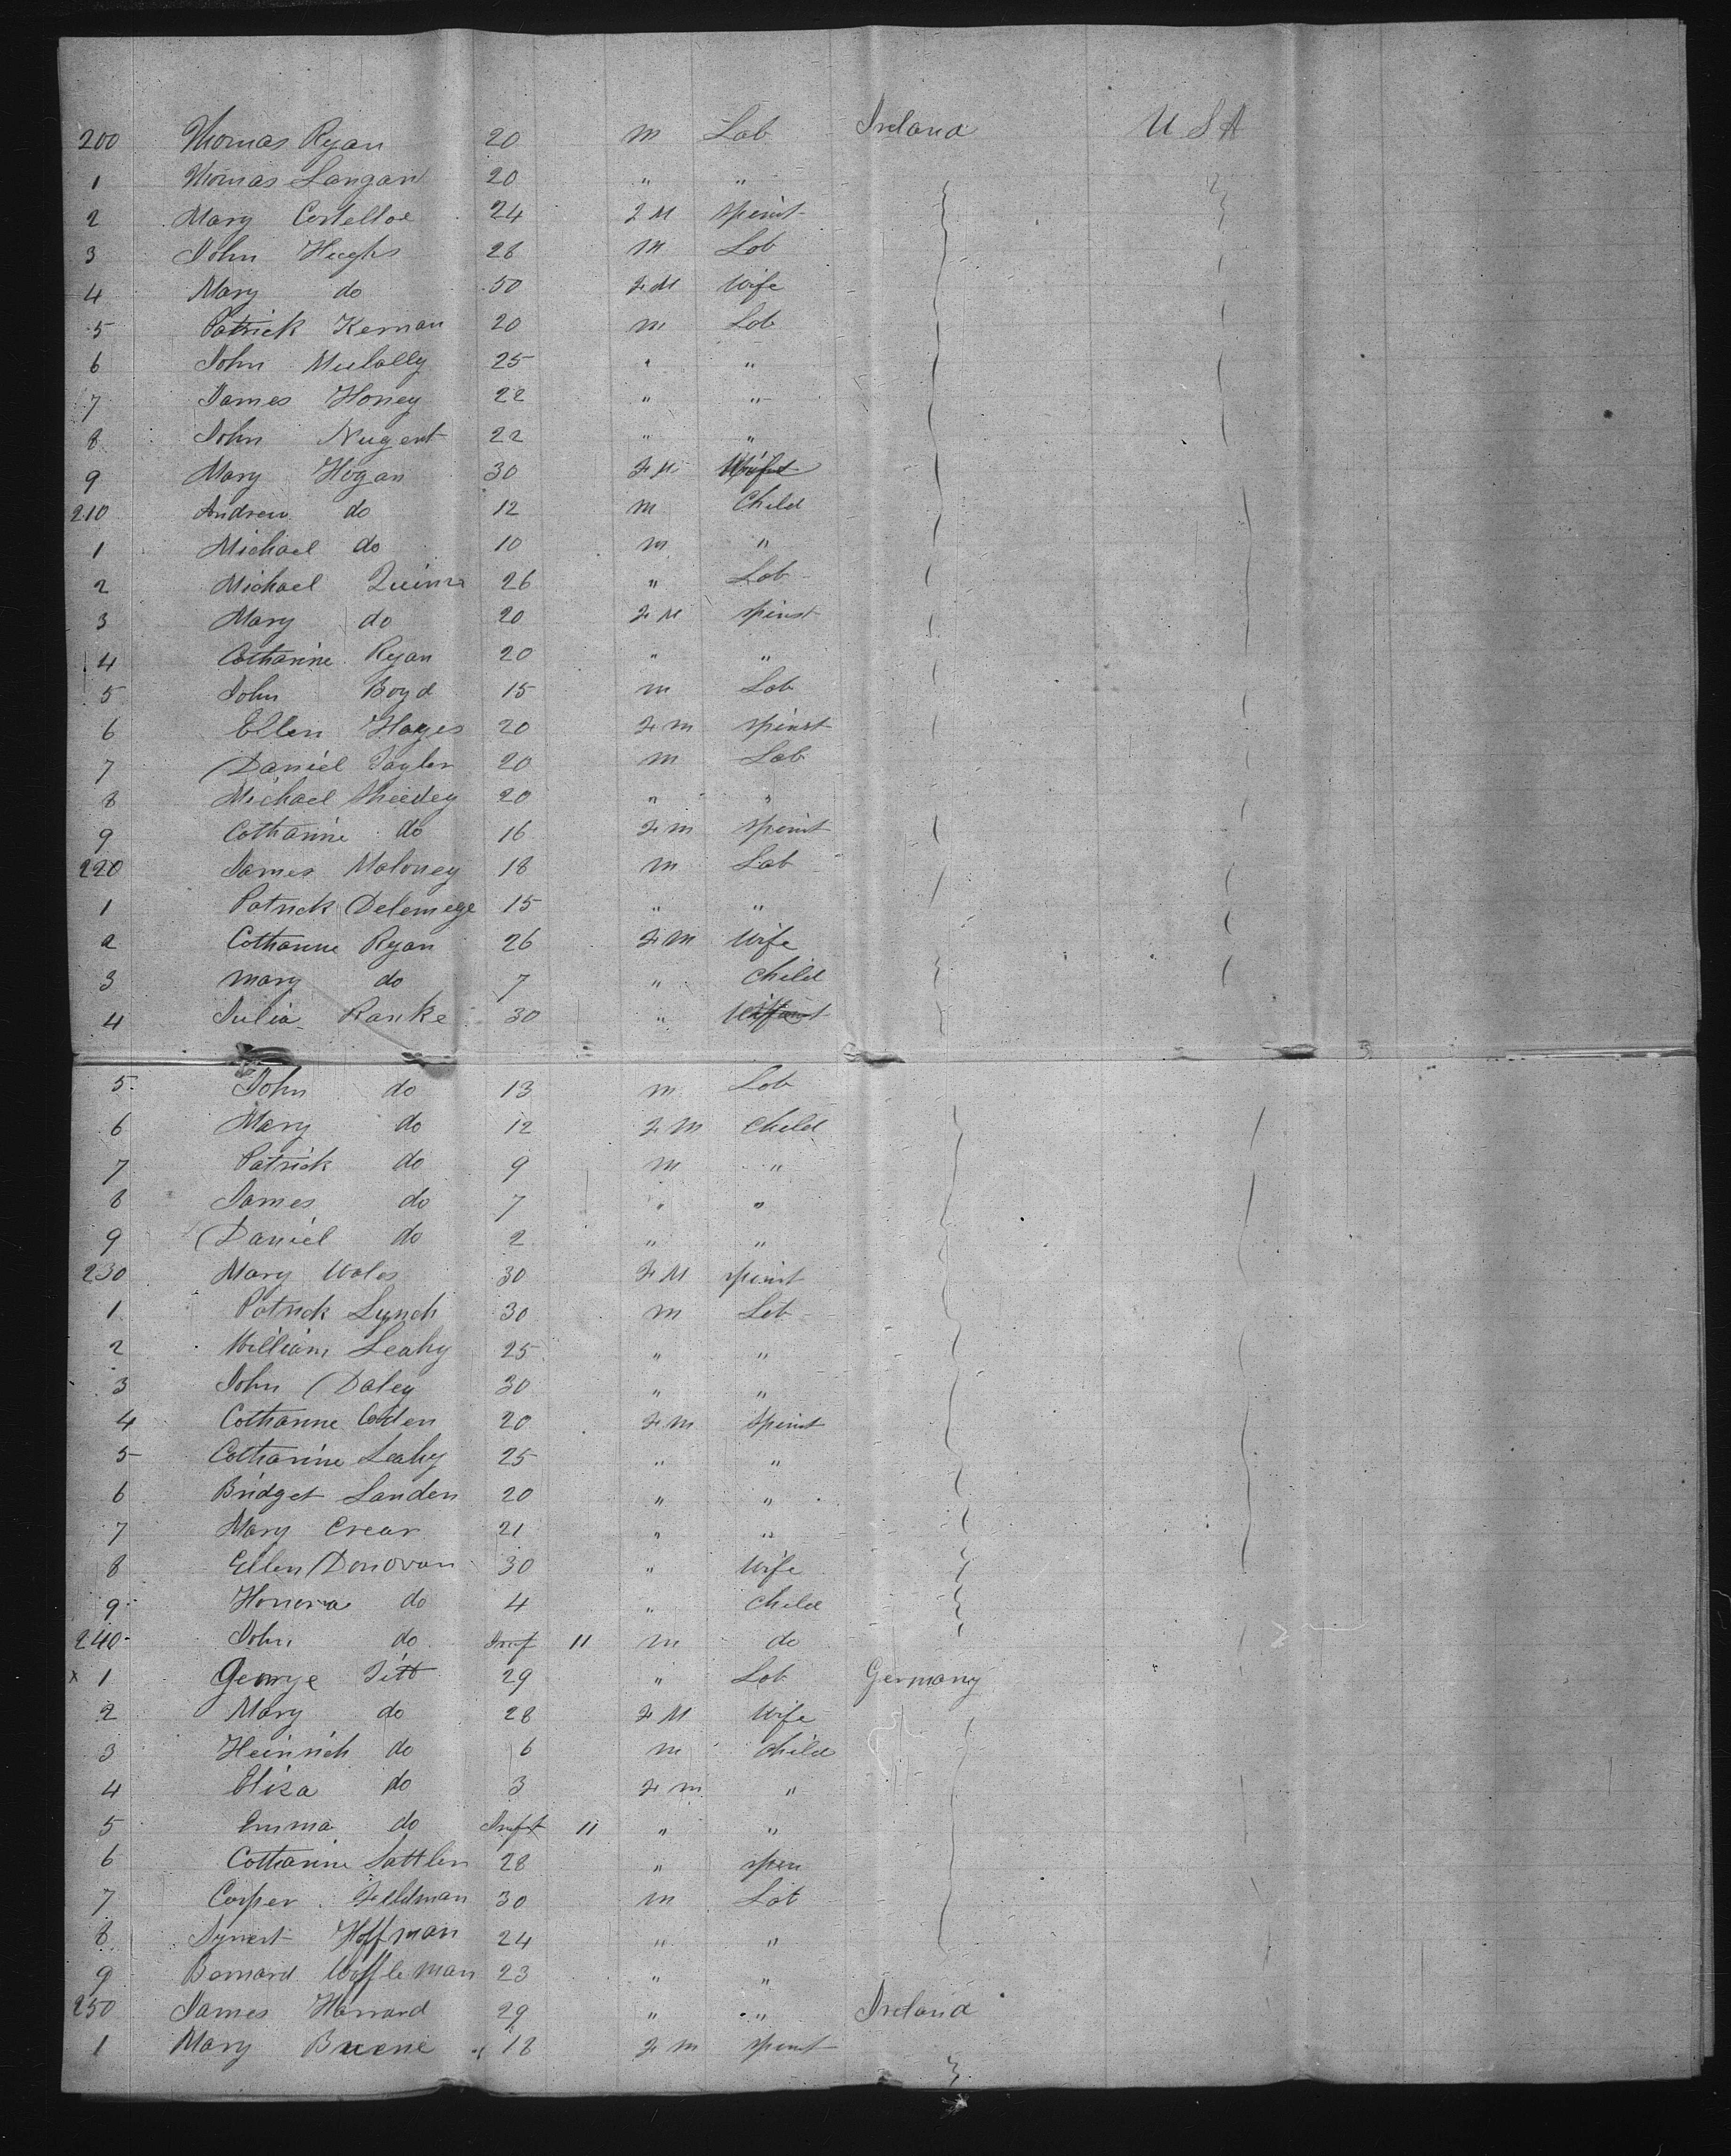 200 Thomas Ryan 20 m Lab Ireland U S A
1 Thomas Langan 20 " "
2 Mary Costelloe 24 F M Spinst
3 John Hughs 28 m Lab
4 Mary do 50 F M Wife
5 Patrick Kernan 20 m Lab
6 John Mulally 25 " "
7 James Honey 22 " "
8 John Nugent 22 " "
9 Mary Hogan 30 F M Wife
210 Andrew do 12 m Child
1 Michael do 10 m "
2 Michael Quinn 26 " Lab
3 Mary do 20 F M Spinst
4 Catharine Ryan 20 " "
5 John Boyd 15 m Lab
6 Ellen Hayes 20 F m Spinst
7 Daniel Tayler 20 m Lab
8 Michael Sheedey 20 " "
9 Catharine do 16 F m Spinst
220 James Maloney 18 m Lab
1 Patrick Delemege 15 " "
2 Catharine Ryan 26 F M Wife
3 Mary do 7 " Child
4 Julia Ranke 30 "
5 John do 13 m Lab
6 Mary do 12 F M Child
7 Patrick do 9 m "
8 James do 7 " "
9 Daniel do 2 " "
230 Mary Wales 30 F M Spinst
1 Patrick Lynch 30 m Lab
2 William Leahy 25 " "
3 John Daley 30 " "
4 Catharine Coden 20 F m Spinst
5 Catharine Leahy 25 " "
6 Bridget Landen 20 " "
7 Mary Crear 21 " "
8 Ellen Donovan 30 " Wife
9 Honora do 4 " Child
240 John do Inf 11 m do
x 1 George Titt 29 " Lab Germany
2 Mary do 28 F M Wife
3 Heinrich do 6 m Child
4 Eliza do 3 F m "
5 Emma do Inft 11 " "
6 Catharine Sattler 28 " spin
7 Casper Feldman 30 m Lab
8 Hoffman 24 " "
9 Bernard Woffleman 23 " "
250 James Harrard 29 " " Ireland
1 Mary Buene 18 F m Spinst